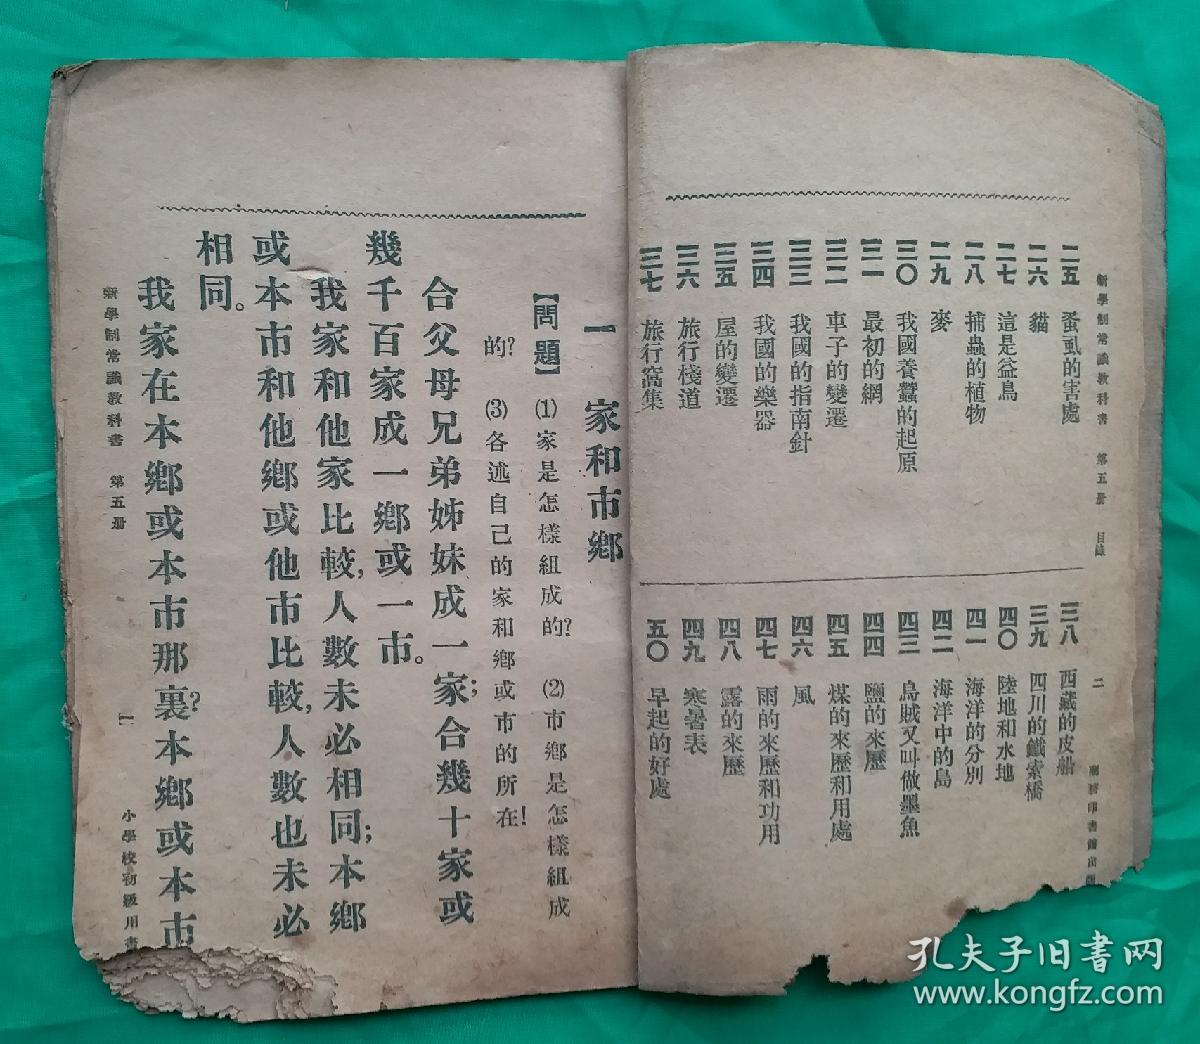 新學制常識教科書 第五册 目錄 二
二五 蚤虱的害處
二六 貓
二七 這是益鳥
二八 捕蟲的植物
二九 麥
三〇 我國養蠶的起原
三一 最初的網
三二 車子的變遷
三三 我國的指南針
三四 我國的樂器
三五 屋的變遷
三六 旅行棧道
三七 旅行窩集
三八 西藏的皮船
三九 四川的鐵索橋
四〇 陸地和水地
四一 海洋的分別
四二 海洋中的島
四三 烏賊又叫做墨魚
四四 鹽的來歷
四五 煤的來歷和用處
四六 風
四七 雨的來歷和功用
四八 露的來歷
四九 寒暑表
五〇 早起的好處
一 家和市鄉
【問題】 ⑴家是怎樣組成的? ⑵市鄉是怎樣組成
的? ⑶各述自己的家和鄉或市的所在!
合父母兄弟姊妹成一家;合幾十家或
幾千百家成一鄉或一市。
我家和他家比較,人數未必相同;本鄉
或本市和他鄉或他市比較,人數也未必
相同。
我家在本鄉或本市那裏?本鄉或本市
新學制常識教科書 第五册 一 小學校初級用書
孔夫子旧书网
www.kongfz.com